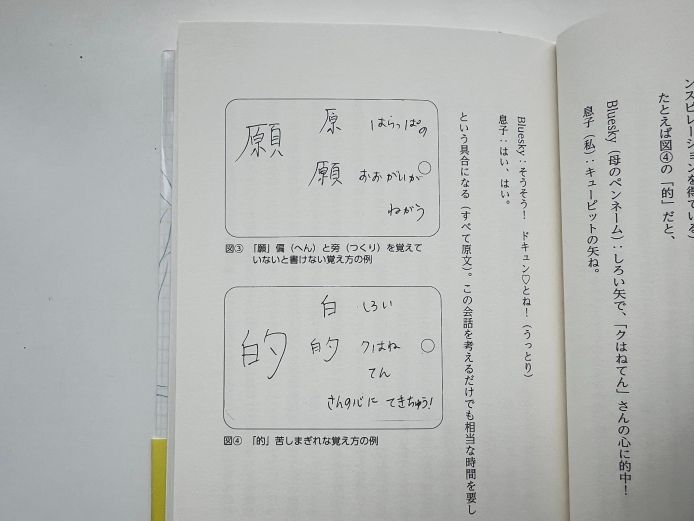 ンスピレーションを得ている）
たとえば図④の「的」だと、
Bluesky（母のペンネーム）：しろい矢で、「クはねてん」さんの心に的中！
息子（私）：キューピットの矢ね。
Bluesky：そうそう！　ドキュン♡とね！（うっとり）
息子：はい、はい。
という具合になる（すべて原文）。この会話を考えるだけでも相当な時間を要し
願
原　はらっぱの
願　おおがいが
ねがう
図③　「願」偏（へん）と旁（つくり）を覚えて
いないと書けない覚え方の例
的
白　しろい
的　クはね
てん
さんの心に　てきちゅう！
図④　「的」苦しまぎれな覚え方の例